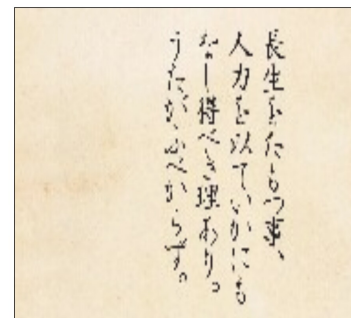 長生をたもつ事、
人力を以ていかにも
なし得べき理あり。
うたがふべからず。